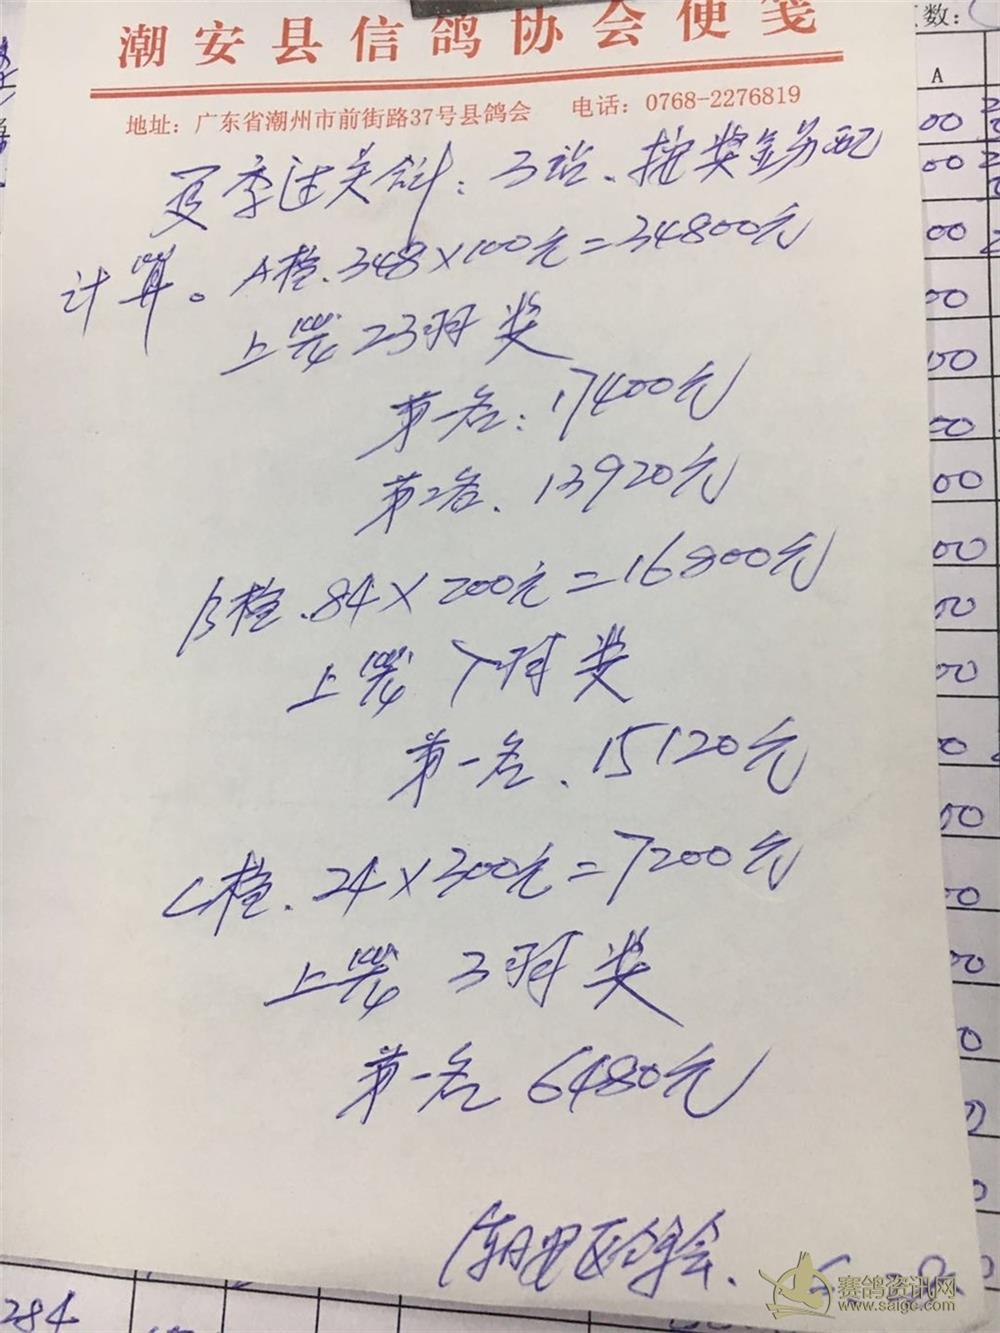 潮安县信鸽协会便笺
数:
A
地址：广东省潮州市前街路37号县鸽会 电话：0768-2276819
夏季达关合计：三站、按奖金分配
计算。A档.348×100元=34800元
上笼23羽奖
第一名：17400元
第2名、13920元
B档.84×200元=16800元
上笼 羽奖
第一名、15120元
C档.24×300元=7200元
上笼 3羽奖
第一名 6480元
潮安区信鸽会.
284
赛鸽资讯网
www.saigc.com